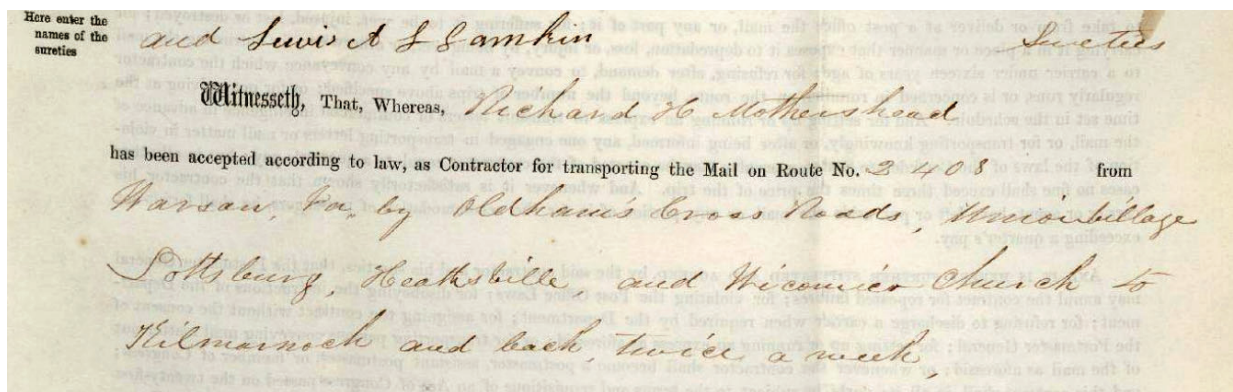 Here enter the
names of the
sureties
and Lewis A L Lamkin Sureties
Witnesseth, That, Whereas, Richard H Mothershead
has been accepted according to law, as Contractor for transporting the Mail on Route No. 2408 from
Warsaw, Va. by Oldham's Cross Roads, Union Village
Lottsburg, Heathsville and Wicomico Church to
Kilmarnock and back, twice a week,